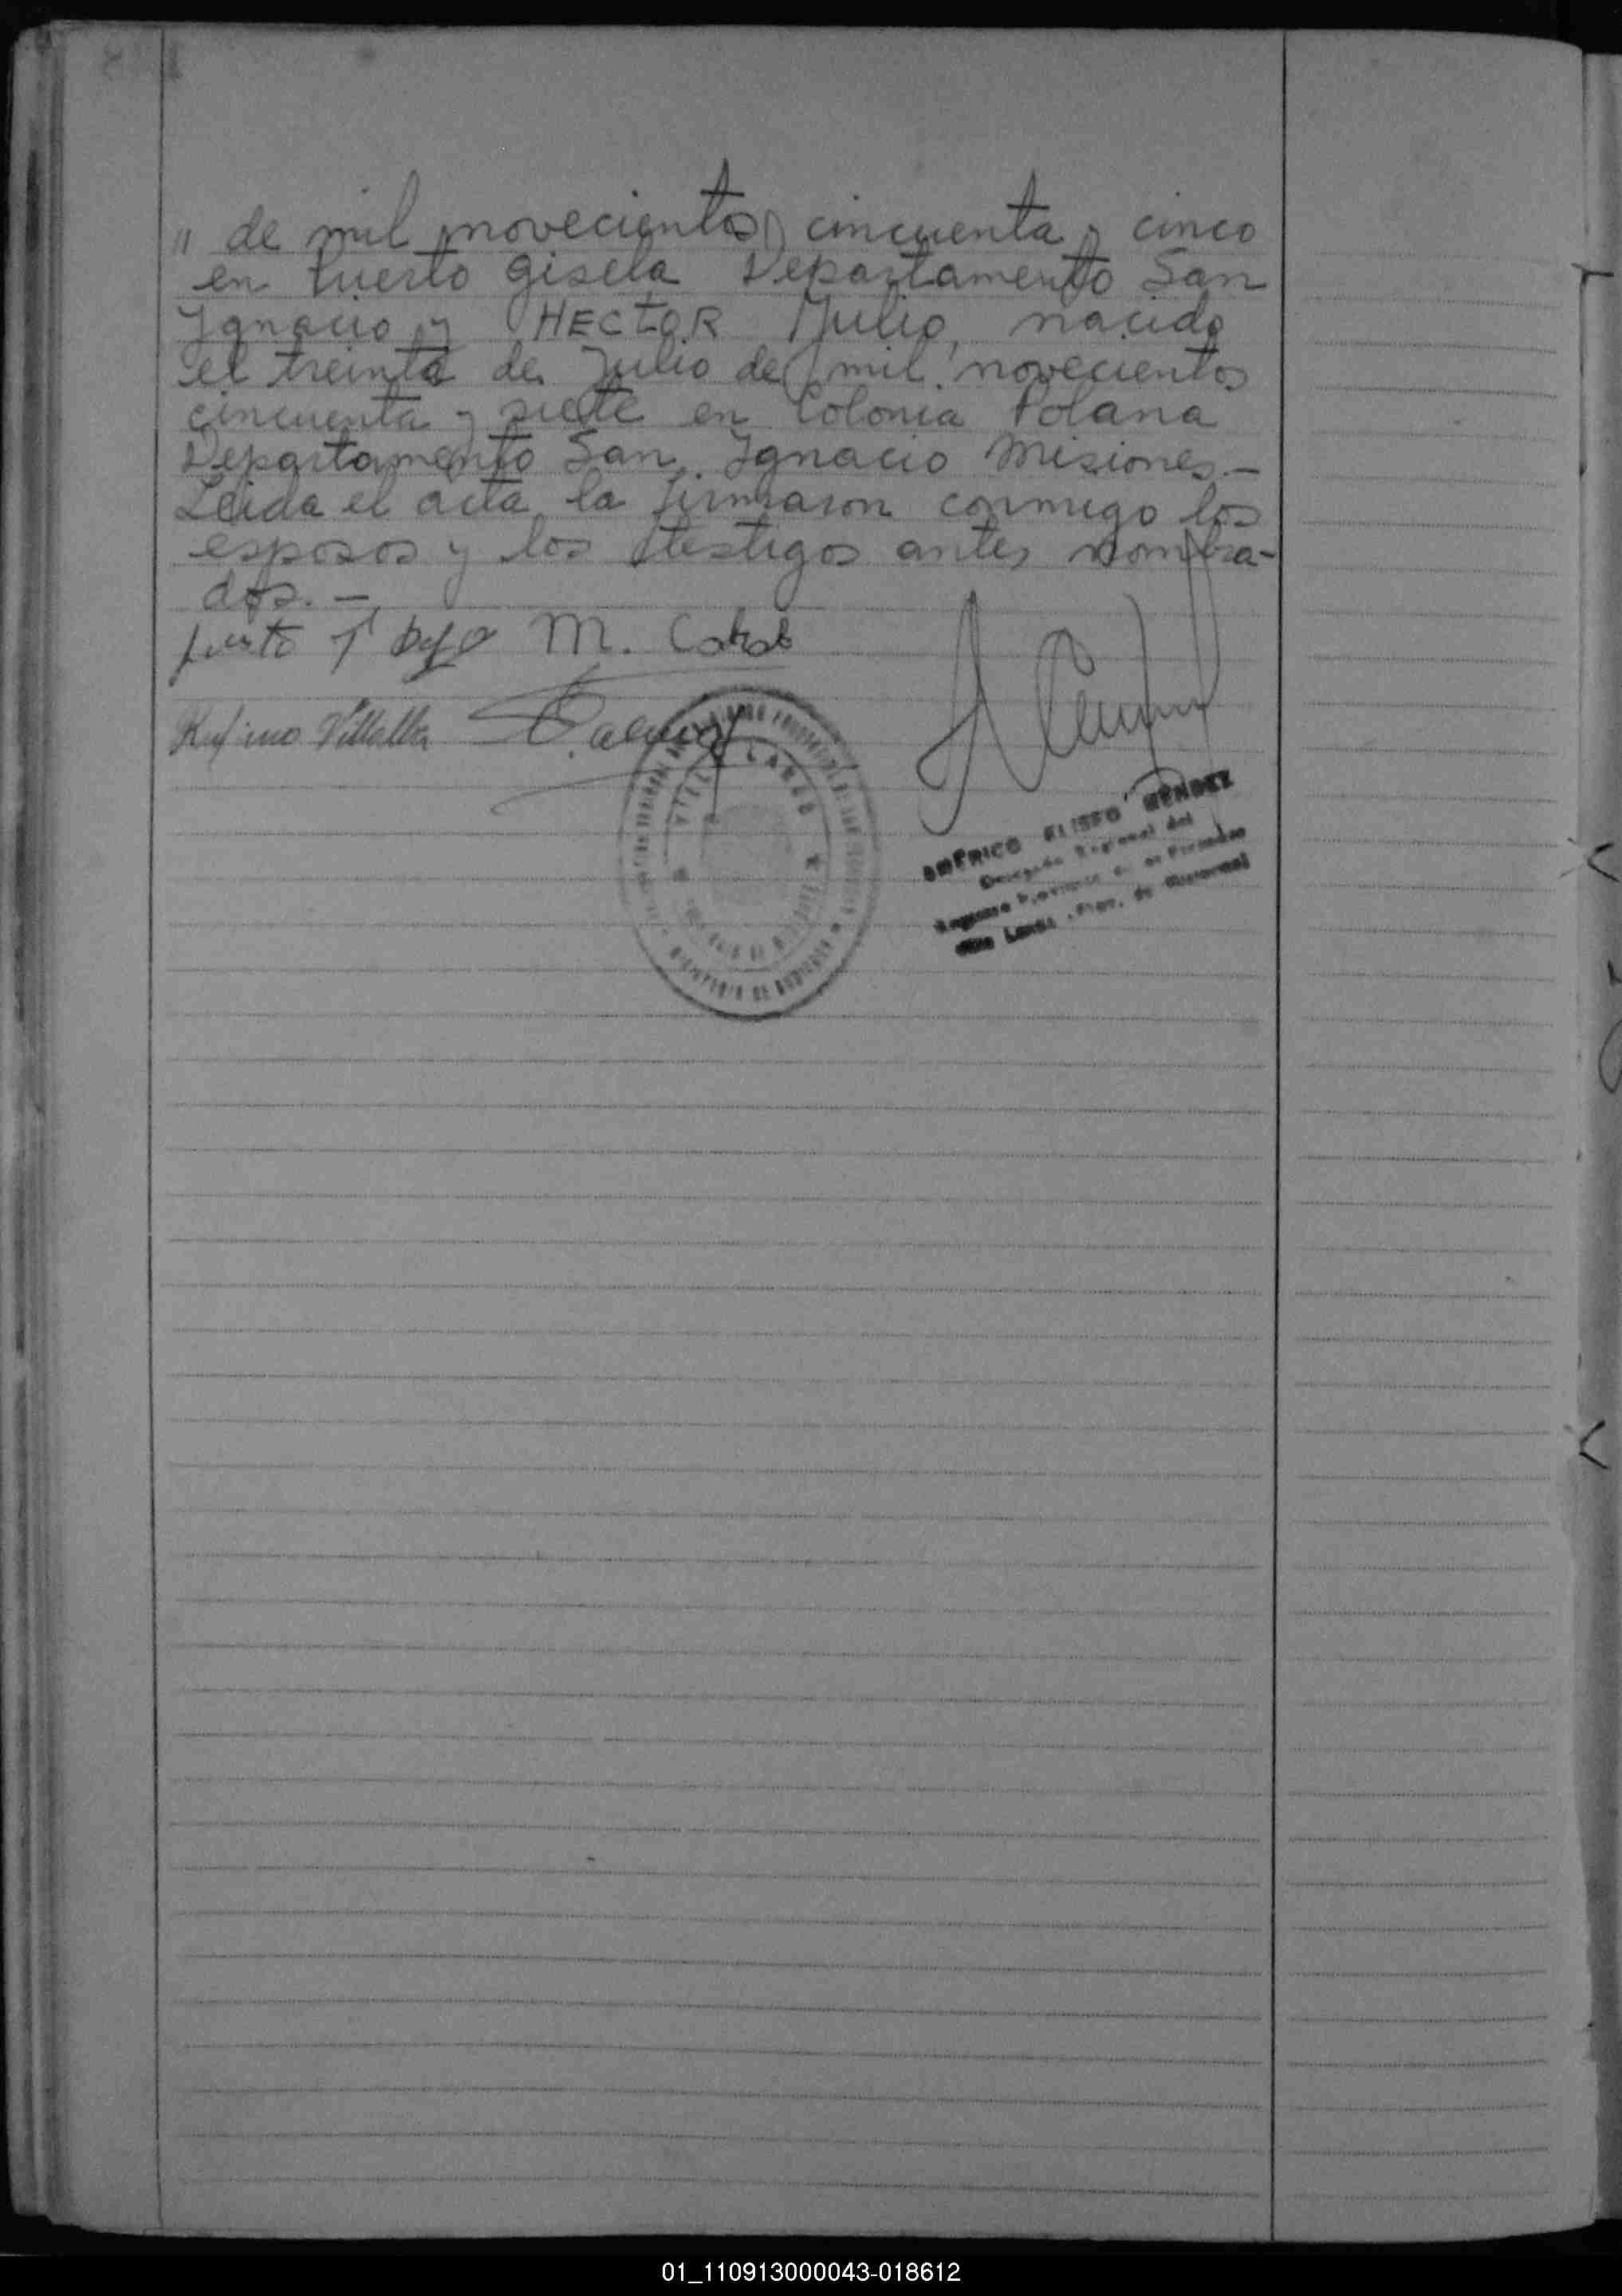 " de mil novecientos cincuenta y cinco
en Puerto Gisela Departamento San
Ignacio y HECTOR Julio, nacido
el treinta de Julio de mil novecientos
cincuenta y siete en Colonia Polana
Departamento San Ignacio Misiones.-
Leida el acta la firmaron conmigo los
esposos y los testigos antes nombra-
dos.-
M.
Rufino Villalba
AMERICO ELISEO MENDEZ
Delegado Regional del
Registro Provincial de las Personas
01_110913000043-018612